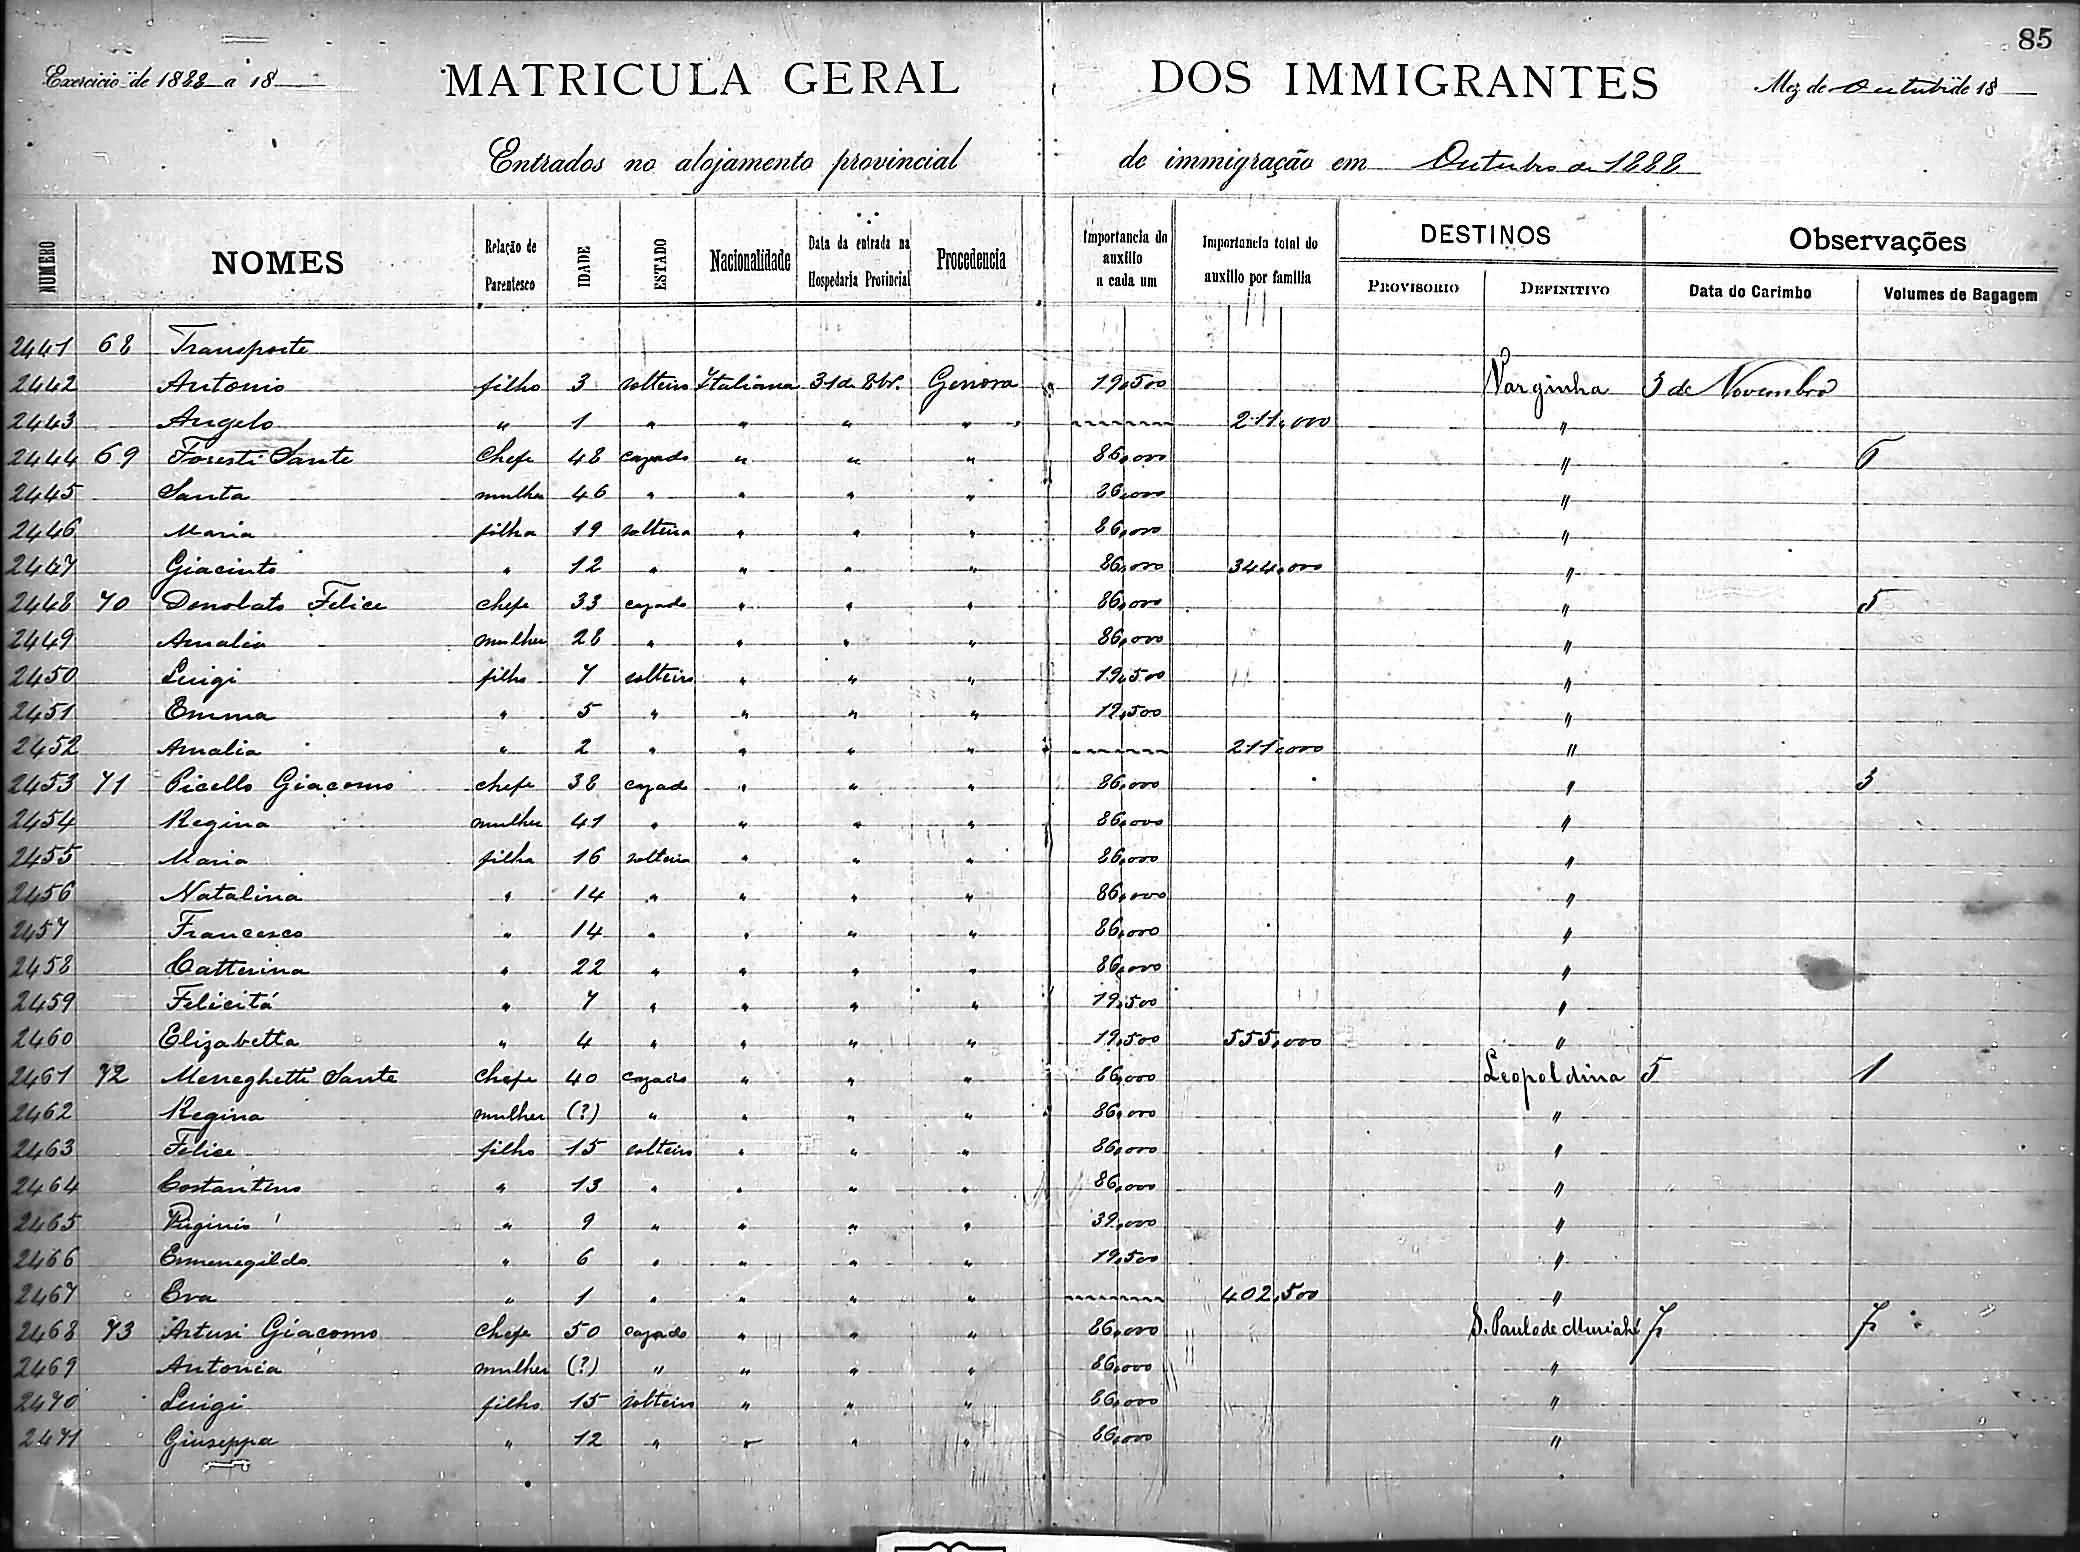 85
Exercicio de 1888 a 18
MATRICULA GERAL DOS IMMIGRANTES
Mez de Outubro de 18
Entrados no alojamento provincial de immigração em Outubro de 1888
NUMERO NOMES Relação de Parentesco IDADE ESTADO Nacionalidade Data da entrada na Hospedaria Provincial Procedencia Importancia do auxilio a cada um Importancia total do auxilio por familia DESTINOS PROVISORIO DEFINITIVO Observações Data do Carimbo Volumes de Bagagem
2441 68 Transporte
2442 Antonio filho 3 solteiro Italiana 31 de 8br. Genova 19,500 Varginha 3 de Novembro
2443 Angelo " 1 " " " " 211,000 "
2444 69 Foresti Sante Chefe 48 cazado " " " 86,000 " 6
2445 Santa mulher 46 " " " " 86,000 "
2446 Maria filha 19 solteira " " " 86,000 "
2447 Giacinto " 12 " " " " 86,000 344,000 "
2448 70 Donobato Felice chefe 33 cazado " " " 86,000 " 5
2449 Amalia mulher 28 " " " " 86,000 "
2450 Luigi filho 7 solteiro " " " 19,500 "
2451 Emma " 5 " " " " 19,500 "
2452 Amalia " 2 " " " " 211,000 "
2453 71 Picello Giacomo chefe 38 cazado " " " 86,000 " 3
2454 Regina mulher 41 " " " " 86,000 "
2455 Maria filha 16 solteira " " " 86,000 "
2456 Natalina " 14 " " " " 86,000 "
2457 Francesco " 14 " " " " 86,000 "
2458 Catterina " 22 " " " " 86,000 "
2459 Felicitá " 7 " " " " 19,500 "
2460 Elizabetta " 4 " " " " 19,500 555,000 "
2461 72 Meneghetti Sante Chefe 40 cazado " " " 86,000 Leopoldina 5 1
2462 Regina mulher (?) " " " " 86,000 "
2463 Felice filho 15 solteiro " " " 86,000 "
2464 Costantino " 13 " " " " 86,000 "
2465 " 9 " " " " 39,000 "
2466 Ermenegildo " 6 " " " " 19,500 "
2467 Eva " 1 " " " " 402,500 "
2468 73 Artusi Giacomo Chefe 50 cazado " " " 86,000 S. Paulo de Muriahé 7 7
2469 Antonia mulher (?) " " " " 86,000 "
2470 Luigi filho 15 solteiro " " " 86,000 "
2471 Giuseppa " 12 " " " " 86,000 "